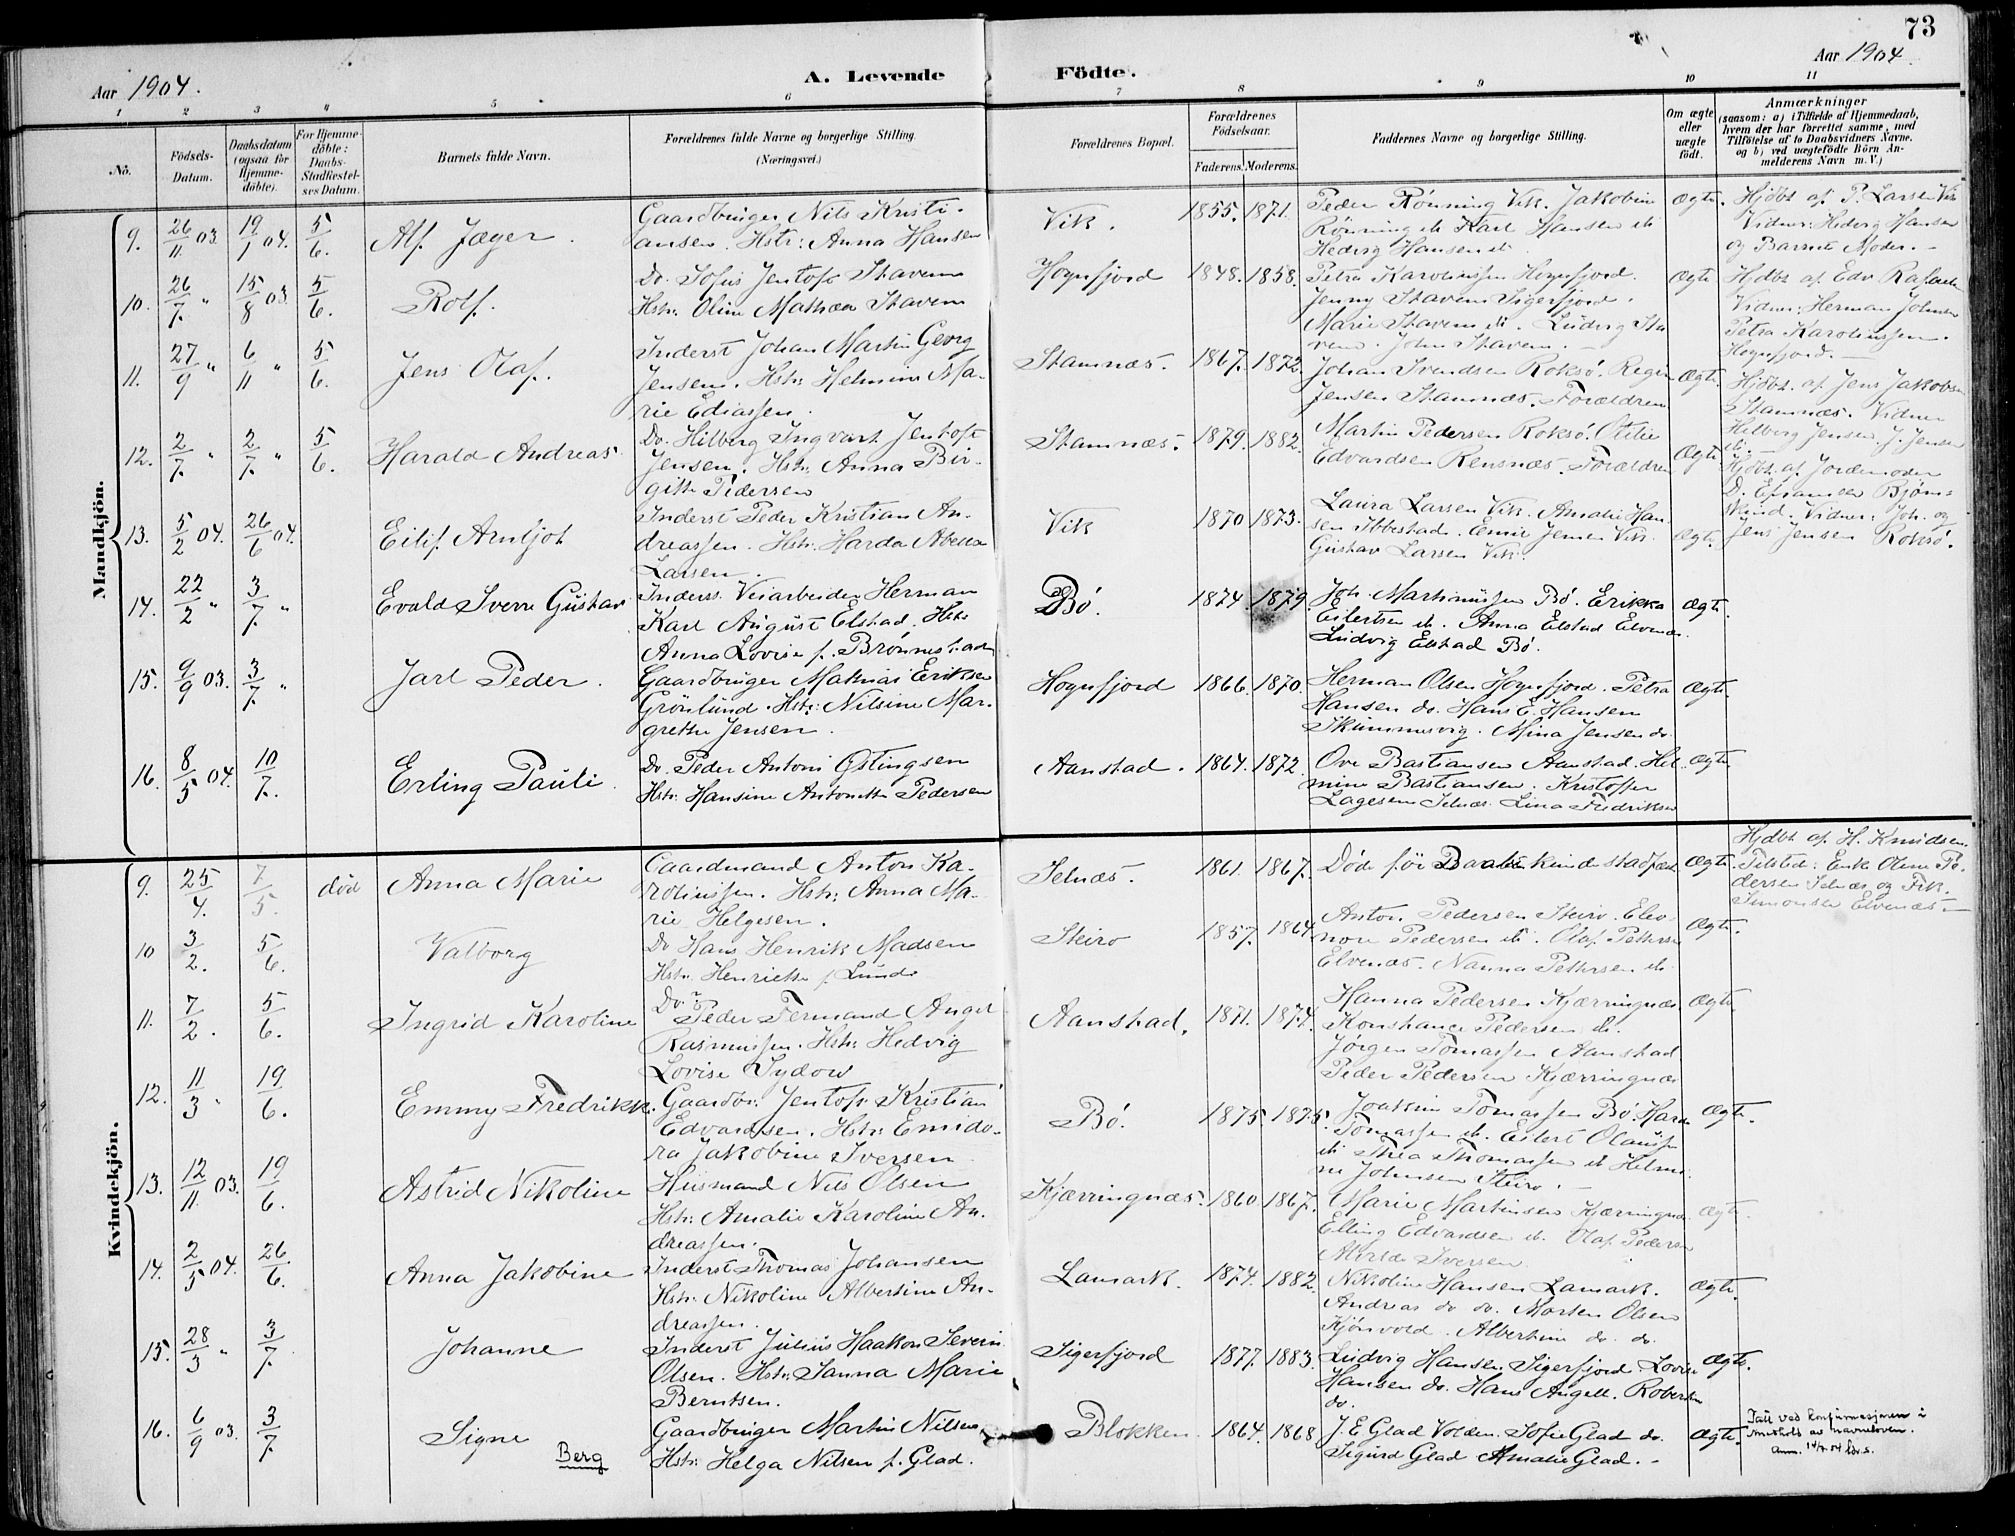 73
Aar 1904.
A. Levende
Födte.
Aar 1904.
1 2 3 4 5 6 7 8 9 10 11
No.
Födsels-Datum.
Daabsdatum (ogsaa for Hjemme-döbte).
For Hjemme-döbte: Daabs-Stadfæstel-ses Datum.
Barnets fulde Navn.
Forældrenes fulde Navne og borgerlige Stilling.
(Næringsvei.)
Forældrenes Bopæl.
Forældrenes Födselsaar.
Faderens. Moderens.
Faddernes Navne og borgerlige Stilling.
Om ægte eller uægte födt.
Anmærkninger
(saasom: a) i Tilfælde af Hjemmedaab, hvem der har forrettet samme, med Tilföielse af to Daabsvidners Navne. og b) ved uægtefödte Börn An-melderens Navn m. V.)
Mandkjön.
9. 26/11 03. 19/1 04. 5/6. Alf Jæger.
Gaardbruger Nils Kristi-
ansen. Hstr: Anna Hansen
Vik. 1855. 1871.
Peder Rönning Vik. Jakobine
Rönning do Karl Hansen do
Hedvig Hansen do
Ægte.
Hjdbt af P. Larsen Vik
Vidner: Hedvig Hansen
og Barnets Moder. -
10. 26/7. " 15/8 03. 5/6. Rolf.
Do. Sofus Jentoft Stavem
Hstr. Oline Mathea Stavem
Hognfjord 1848. 1858.
Petra Karolinssen Hognfjord.
Jenny Stavem Sigerfjord.
Marie Stavem do. Ludvig Sta
vem. John Stavem. -
Ægte
Hjdbt af Edv. Rafaelsen
Vidner: Herman Johnsen
Petra Karolinssen.
Hognfjord. -
11. 27/9 " 6/11 " 5/6. Jens Olaf.
Inderst Johan Martin Georg
Jensen. Hstr. Helmine Ma-
rie Ediassen.
Stamnæs. 1867. 1872.
Johan Svendsen Roksö. Regine
Jensen Stamnæs. Forældrene
Ægte.
Hjdbt. af Jens Jakobsen
Stamnæs. Vidner
Hilberg Jensen. J. Jensen
do. -
12. 2/7. " 2/7. " 5/6. Harald Andreas
Do. Hilberg Ingvart Jentoft
Jensen. Hstr. Anna Bir-
gitte Pedersen
Stamnæs. 1879. 1882.
Martin Pedersen Roksö. Otilie
Edvardsen Rensnæs. Forældrene
Ægte
Hjdbt. af Jordemoder
D. Efraimsen Björns-
kind. Vidner: Joh. og
Jens Jensen Roksö.
13. 5/2 04. 26/6 04. Eilif Arntjot
Inderst Peder Kristian An-
dreassen. Hstr. Harda Abella
Larsen.
Vik 1870 1873.
Laura Larsen Vik. Amalie Han-
sen Ibbestad. Emil Jensen Vik.
Gustav Larsen Vik.
Ægte.
14. 22/2 " 3/7. " Evald Sverre Gustav
Inderst. Veiarbeider Herman
Karl August Elstad. Hstr
Anna Lovise f. Brönnestad
Bö. 1874. 1879
Joh. Martinussen Bö. Erikka
Eilertsen do. Anna Elstad Elvenæs.
Ludvig Elstad Bö.
Ægte.
15. 9/9 03. 3/7. " Jarl Peder.
Gaardbruger Mathias Eriksen
Grönlund. Hstr: Nilsine Mar-
grethe Jensen.
Hognfjord 1866. 1870.
Herman Olsen Hognfjord. Petra
Hansen do. Hans E. Hansen
Skummesvig. Mina Jensen do.
Ægte.
16. 8/5 04. 10/7. Erling Pauli.
Do. Peder Antoni Östingsen
Hstr: Hansine Antonette Pedersen
Aanstad. 1864. 1872.
Ove Bastiansen Aanstad. Hel-
mine Bastiansen. Kristoffer
Lagesen Selnæs. Lina Fredriksen
Ægte.
Kvindekjön.
9. 25/4. 7/5. död Anna Marie
Gaardmand Anton Ka-
rolinssen. Hstr: Anna Ma-
rie Helgesen.
Selnæs. 1861. 1867.
Död för Daaben kunde stadfæst
Ægte.
Hjdbt af H. Knudsen.
Tilsted: Enke Oline Pe-
dersen Selnæs og Fik.
Simonsen Elvenæs. -
10 3/2. 5/6. Valborg
Do Hans Henrik Madsen
Hstr. Henriette f. Lunde
Steiro 1857. 1864
Anton Pedersen Steiro. Eleo-
nore Pedersen do. Olaf Pettersen
Elvenæs. Nanna Pettersen do.
Ægte.
11. 7/2. 5/6. Ingrid Karoline
Do. Peder Fermand Angel
Rasmussen. Hstr. Hedvig
Lovise Sydow
Aanstad. 1871. 1874.
Hanna Pedersen Kjærringnæs
Konstance Pedersen do.
Jörgen Tomassen Aanstad
Peder Pedersen Kjærringnæs
Ægte
12. 11/3 " 19/6. Emmy Fredrikke.
Gaardbr. Jentoft Kristian
Edvardsen. Hstr: Emido-
ra Jakobine Iversen
Bö. 1875. 1875.
Joakim Tomassen Bö. Hara
Tomassen do. Eilert Olaussen
do Thea Thomassen do Helmi-
ne Johnsen Steiro. -
Ægte.
13. 12/11 03. 19/6. Astrid Nikoline
Husmand Nils Olsen
Hstr: Amalie Karoline An-
dreassen.
Kjærringnæs. 1860. 1867.
Marie Martinsen Kjærringnæs.
Elling Edvardsen do. Olaf Pedersen
Alvilde Iversen.
Ægte.
14. 2/5 04. 26/6. Anna Jakobine
Inderst Thomas Johansen
Hstr. Nikoline Albertine An-
dreassen.
Lamark. 1874. 1882.
Nikoline Hansen Lamark.
Andreas do do. Morten Olsen
Kjönvold. Albertine do. do.
Ægte.
15. 28/3 " 3/7. Johanne
Inderst Julius Haakon Severin
Olsen. Hstr. Sanna Marie
Berntsen.
Sigerfjord 1877. 1883.
Ludvig Hansen. Sigerfjord. Lovise
Hansen do. Hans Angell. Robertine
do.
Ægte.
16. 6/9 03. 3/7. Signe
Berg
Gaardbruger Martin Nilsen
Hstr. Helga Nilsen f. Glad.
Blokken. 1864. 1868
J. E. Glad Volden. Sofie Glad do.
Sigurd Glad Amalie Glad. -
Ægte.
Tatt ved konfirmasjonen i
henhold av navneloven.
Anm. 14/7. 04